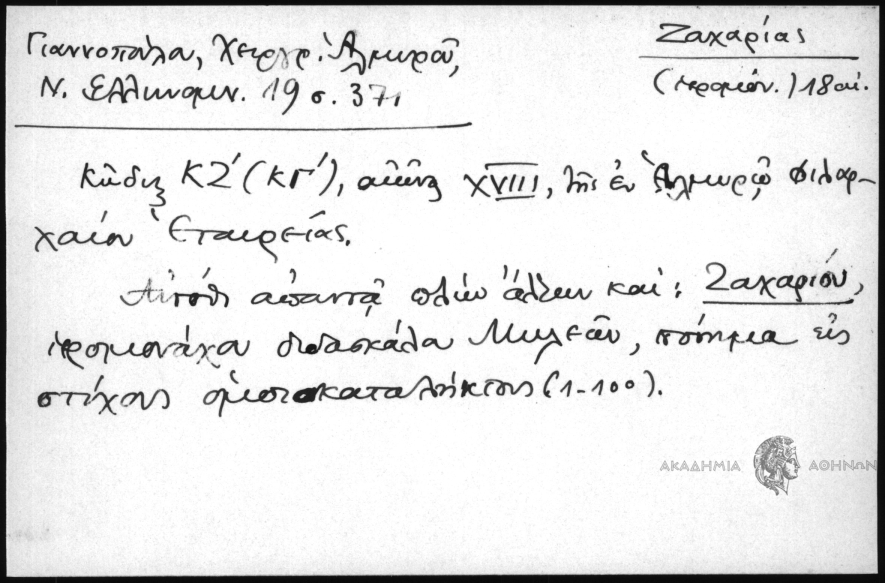 Γιαννοπούλου, Χειργρ. Ἁλμυροῦ,
Ν. Ἑλληνομν. 19 σ. 371
Ζαχαρίας
(ἱερομόν.) 18 αἰ.
Κῶδιξ ΚΖ' (ΚΓ'), αἰῶνος XVIII, τῆς ἐν Ἁλμυρῷ Φιλαρ-
χαίου Ἑταιρείας.
Αὐτόθι ἀπαντᾷ πλὴν ἄλλων καί: Ζαχαρίου,
ἱερομονάχου διδασκάλου Μηλεῶν, ποίημα εἰς
στίχους ὁμοιοκαταλήκτους (1-100).
ΑΚΑΔΗΜΙΑ ΑΘΗΝΩΝ